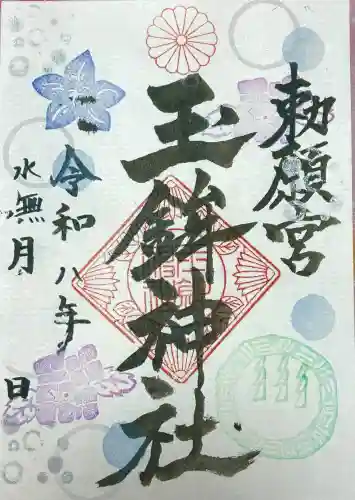 勅願宮
玉鉾神社
令和八年
水無月
日